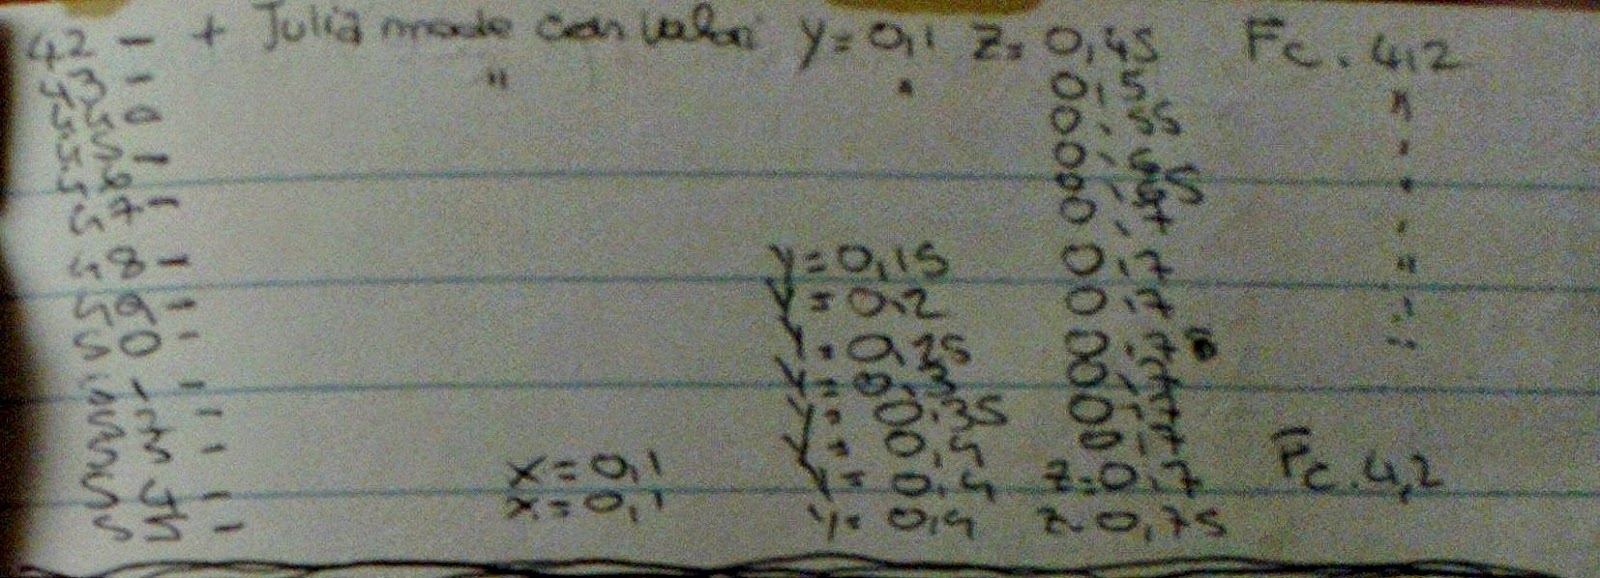 42 - + Julia mode con valori y=0,1 z=0,45 Fc. 4,2
43 - " " 0,5 "
44 - 0,55 "
45 - 0,6 "
46 - 0,65 "
47 - 0,7 "
48 - y=0,15 0,7 "
49 - y=0,2 0,7 "
50 - y=0,25 0,7 "
51 - y=0,3 0,7
52 - y=0,35 0,7
53 - y=0,4 0,7
54 - x=0,1 y=0,4 z=0,7 Fc. 4,2
55 - x=0,1 y=0,4 z=0,75